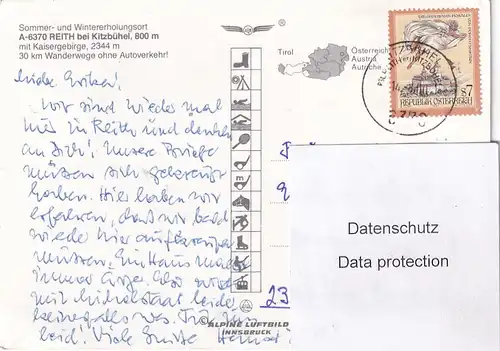 Sommer- und Wintererholungsort
A-6370 REITH bei Kitzbühel, 800 m
mit Kaisergebirge, 2344 m
30 km Wanderwege ohne Autoverkehr!
Tirol
Österreich
Austria
Autriche
S7
REPUBLIK ÖSTERREICH
Liebe Erika!
Wir sind wieder mal
hier in Reith und denken
an Dich! Unsere Briefe
müssen sich gekreuzt
haben. Hier haben wir
erfahren, daß wir bald
wieder hier
müssen. Ein Haus macht
immer Ärger. Also wird
mit leider
keinesfalls was. Tut
leid! Viele Grüße
23
Datenschutz
Data protection
ALPINE LUFTBILD
INNSBRUCK